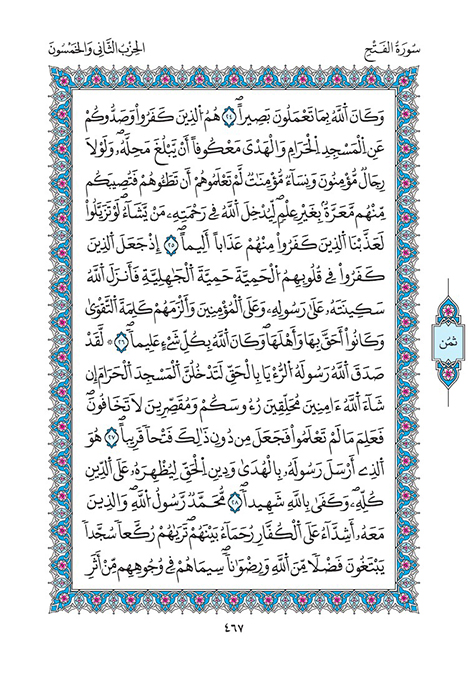 سُورَةُ الفَتْحِ
الحِزْبُ الثَّانِي وَالخَمْسُونَ
وَكَانَ اَ۬للَّهُ بِمَا تَعْمَلُونَ بَصِيراًۖ ٢٤ هُمُ اُ۬لذِينَ كَفَرُواْ وَصَدُّوكُمْ
عَنِ اِ۬لْمَسْجِدِ اِ۬لْحَرَامِ وَالْهَدْيَ مَعْكُوفاً أَنْ يَّبْلُغَ مَحِلَّهُۥۖ وَلَوْلَا
رِجَالٞ مُّؤْمِنُونَ وَنِسَآءٞ مُّؤْمِنَٰتٞ لَّمْ تَعْلَمُوهُمْ أَن تَطَـُٔوهُمْ فَتُصِيبَكُم
مِّنْهُم مَّعَرَّةُۢ بِغَيْرِ عِلْمٖۖ لِّيُدْخِلَ اَ۬للَّهُ فِي رَحْمَتِهِۦ مَنْ يَّشَآءُۖ لَوْ تَزَيَّلُواْ
لَعَذَّبْنَا اَ۬لذِينَ كَفَرُواْ مِنْهُمْ عَذَاباً أَلِيماًۖ ٢٥ إِذْ جَعَلَ اَ۬لذِينَ
كَفَرُواْ فِي قُلُوبِهِمُ اُ۬لْحَمِيَّةَ حَمِيَّةَ اَ۬لْجَٰهِلِيَّةِۖ فَأَنزَلَ اَ۬للَّهُ
سَكِينَتَهُۥ عَلَىٰ رَسُولِهِۦ وَعَلَى اَ۬لْمُؤْمِنِينَ وَأَلْزَمَهُمْ كَلِمَةَ اَ۬لتَّقْو۪ىٰ
وَكَانُواْ أَحَقَّ بِهَا وَأَهْلَهَاۖ وَكَانَ اَ۬للَّهُ بِكُلِّ شَےْءٍ عَلِيماًۖ ٢٦ ۞ لَّقَدْ
صَدَقَ اَ۬للَّهُ رَسُولَهُ اُ۬لرُّءْي۪ا بِالْحَقِّ لَتَدْخُلُنَّ اَ۬لْمَسْجِدَ اَ۬لْحَرَامَ إِن
شَآءَ اَ۬للَّهُ ءَامِنِينَ مُحَلِّقِينَ رُءُوسَكُمْ وَمُقَصِّرِينَ لَا تَخَافُونَۖ
فَعَلِمَ مَا لَمْ تَعْلَمُواْ فَجَعَلَ مِن دُونِ ذَٰلِكَ فَتْحاً قَرِيباًۖ ٢٧ هُوَ
اَ۬لذِے أَرْسَلَ رَسُولَهُۥ بِالْهُد۪ىٰ وَدِينِ اِ۬لْحَقِّ لِيُظْهِرَهُۥ عَلَى اَ۬لدِّينِ
كُلِّهِۦۖ وَكَف۪ىٰ بِاللَّهِ شَهِيداًۖ ٢٨ مُّحَمَّدٞ رَّسُولُ اُ۬للَّهِۖ وَالذِينَ
مَعَهُۥٓ أَشِدَّآءُ عَلَى اَ۬لْكُفّ۪ارِ رُحَمَآءُ بَيْنَهُمْۖ تَر۪ىٰهُمْ رُكَّعاً سُجَّداً
يَبْتَغُونَ فَضْلاً مِّنَ اَ۬للَّهِ وَرِضْوَٰناًۖ سِيمَاهُمْ فِي وُجُوهِهِم مِّنْ أَثَرِ
ثُمُن
٤٦٧